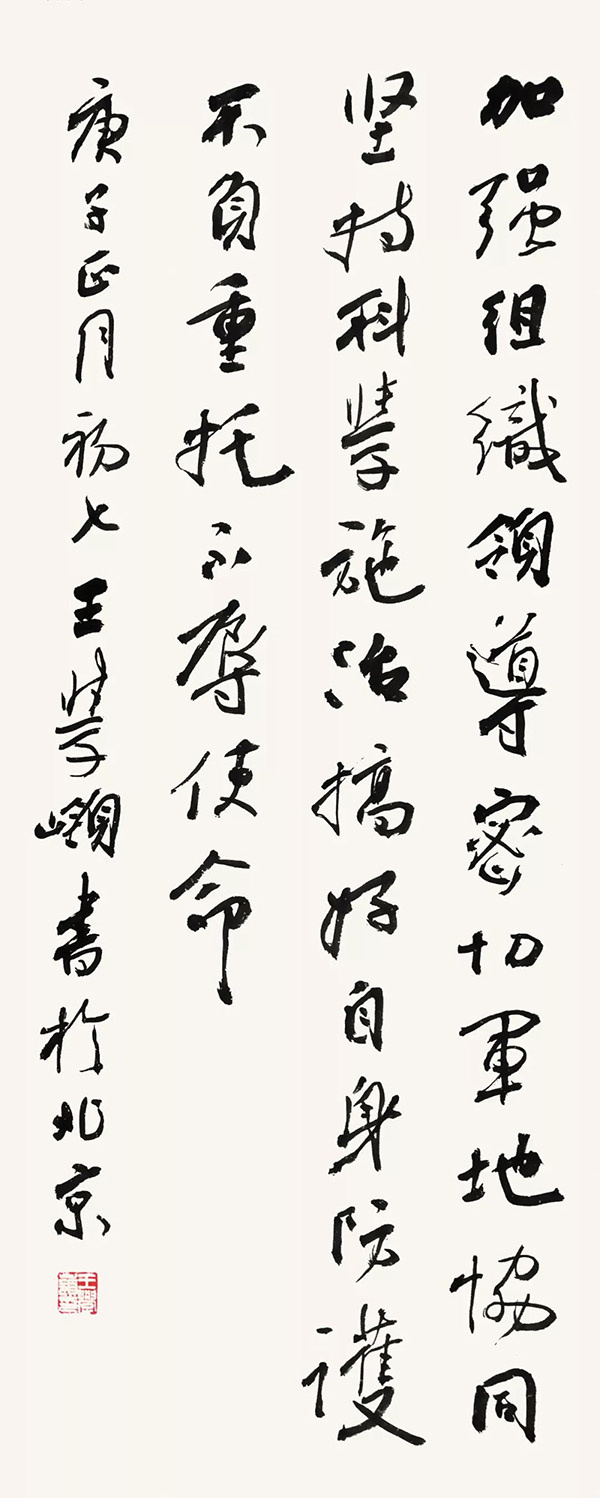 加强组织領導密切軍地協同
坚持科学施治搞好自身防護
不負重托不辱使命
庚子正月初七王学嶺書於北京